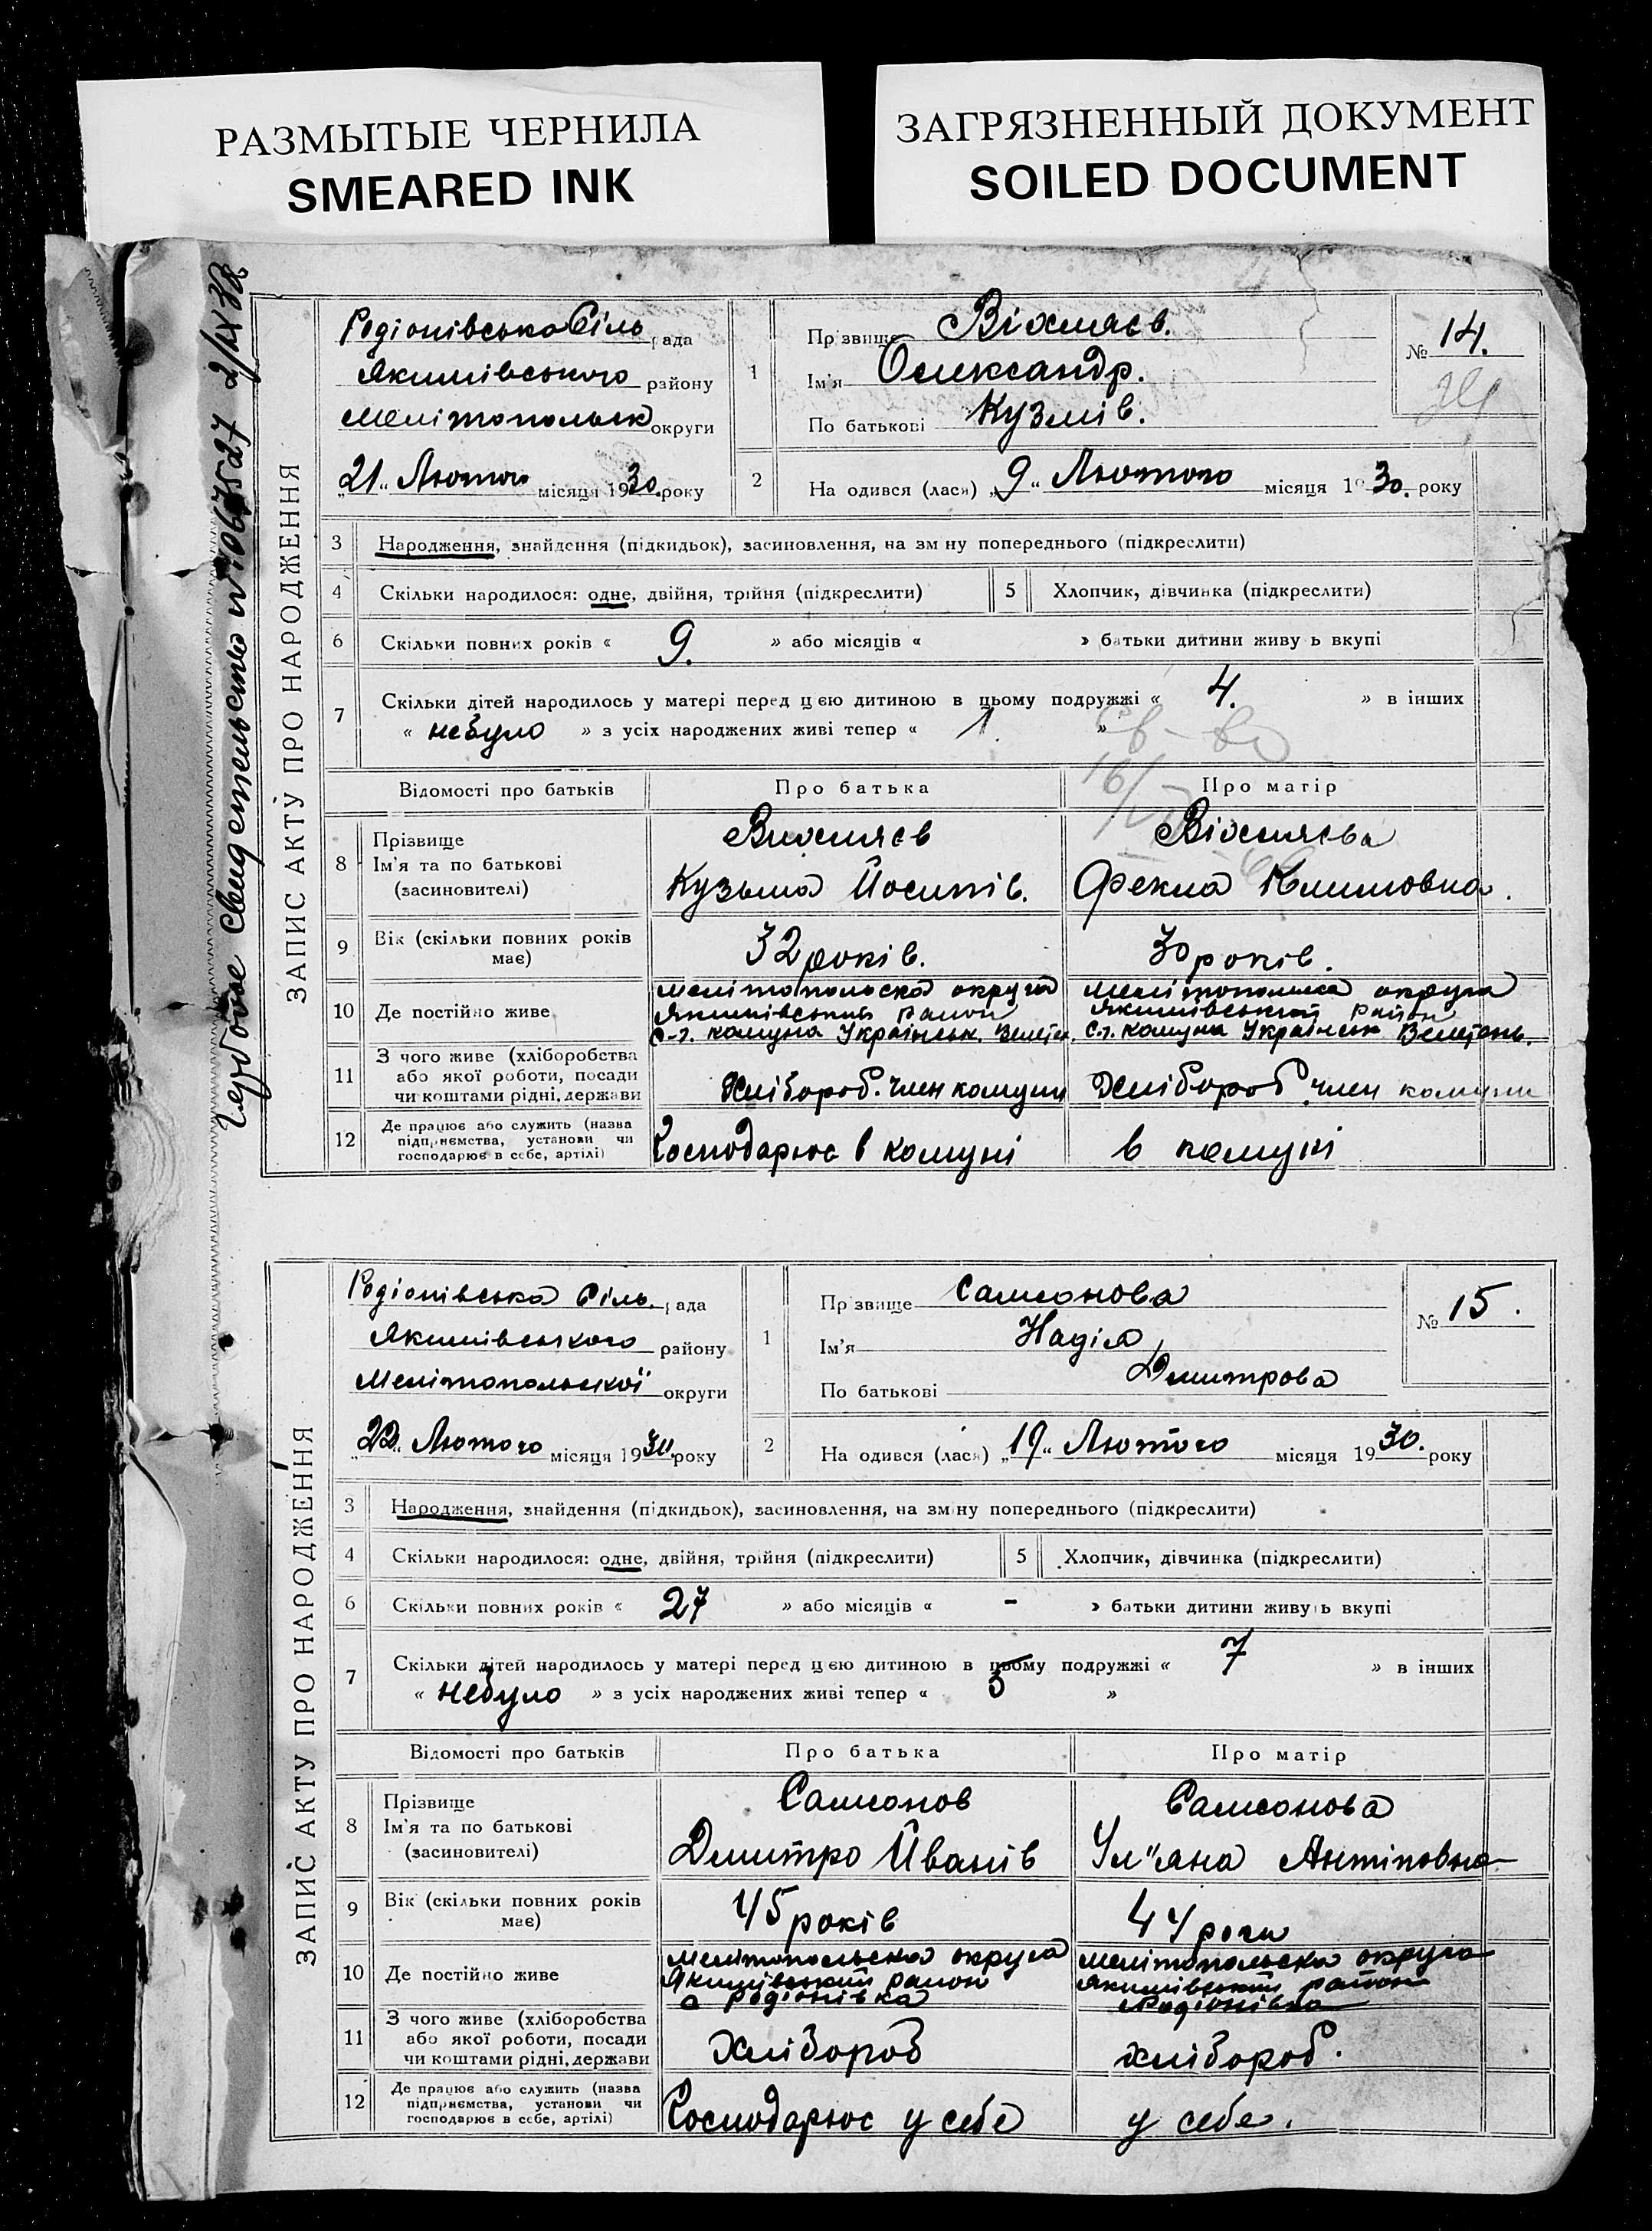 РАЗМЫТЫЕ ЧЕРНИЛА
SMEARED INK
ЗАГРЯЗНЕННЫЙ ДОКУМЕНТ
SOILED DOCUMENT
Гербовое свидетельство
ЗАПИС АКТУ ПРО НАРОДЖЕННЯ
Родіонівська Сіль рада
Якимівського району
Мелітопольск округи
„21„ Лютого місяця 1930. року
1
Прізвище Віхляєв.
Ім'я Олександр.
По батькові Кузмів.
№ 14.
2 На одився (лася) „9„ Лютого місяця 1930. року
3 Народження, знайдення (підкидьок), засиновлення, на зміну попереднього (підкреслити)
4 Скільки народилося: одне, двійня, трійня (підкреслити) 5 Хлопчик, дівчинка (підкреслити)
6 Скільки повних років « 9. » або місяців « » батьки дитини живуть вкупі
7 Скільки дітей народилось у матері перед цією дитиною в цьому подружжі « 4. » в інших
« небуло » з усіх народжених живі тепер « 1. »
св-во
16/
Відомості про батьків Про батька Про матір
8 Прізвище Вихляєв Віхляєва
Ім'я та по батькові Кузьма Йосипів. Фекла Климовна.
(засиновителі)
9 Вік (скільки повних років має) 32 років. 30 років.
10 Де постійно живе
Мелітопольска округа Якимівський район с-г. комуна Українськ. Велетен.
Мелітопольска округа Якимівський район с.г. комуна Українськ Велетень.
11 З чого живе (хліборобства або якої роботи, посади чи коштами рідні, держави
Хлібороб. член комуни Хлібороб член комуни
12 Де працює або служить (назва підприємства, установи чи господарює в себе, артілі)
Господарює в комуні в комуні
ЗАПИС АКТУ ПРО НАРОДЖЕННЯ
Родіонівська Сіль. рада
Якимівського району
Мелітопольскої округи
„22„ Лютого місяця 1930 року
1
Прізвище Самсонова
Ім'я Надія
По батькові Дмитрова
№ 15.
2 На одився (лася) „19„ Лютого місяця 1930. року
3 Народження, знайдення (підкидьок), засиновлення, на зміну попереднього (підкреслити)
4 Скільки народилося: одне, двійня, трійня (підкреслити) 5 Хлопчик, дівчинка (підкреслити)
6 Скільки повних років « 27 » або місяців « - » батьки дитини живуть вкупі
7 Скільки дітей народилось у матері перед цією дитиною в цьому подружжі « 7 » в інших
« небуло » з усіх народжених живі тепер « 5 »
Відомості про батьків Про батька Про матір
8 Прізвище Самсонов Самсонова
Ім'я та по батькові Дмитро Йванів Ул"яна Антіповна
(засиновителі)
9 Вік (скільки повних років має) 45 років 44 роки
10 Де постійно живе
Мелітопольска округа Якимівський район с Родіонівка
Мелітопольска округа Якимівський район Родіонівка
11 З чого живе (хліборобства або якої роботи, посади чи коштами рідні, держави
Хлібороб хлібороб.
12 Де працює або служить (назва підприємства, установи чи господарює в себе, артілі)
Господарює у себе у себе.